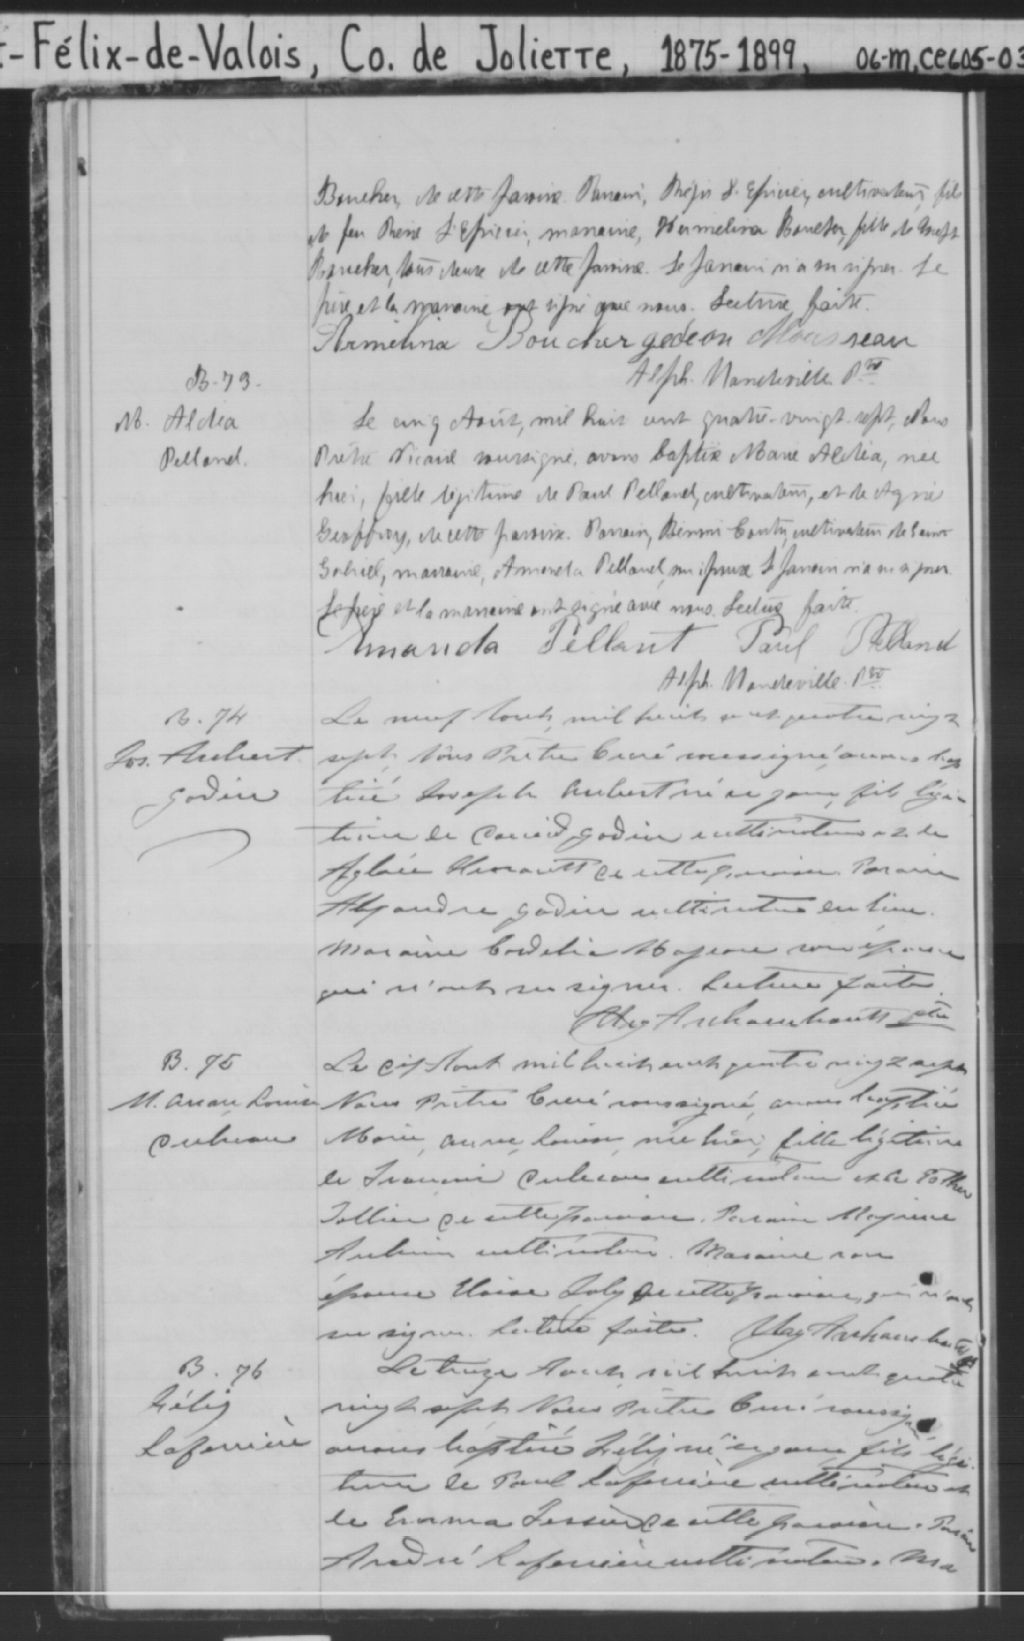 -Félix-de-Valois, Co. de Joliette, 1875-1899, 06-M,CE605-03
Boucher, de cette paroisse. Parrain, Régis L'Epicier, cultivateur, fils
de feu Pierre L'Epicier, marraine, Hermelina Boucher, fille de Joseph
Boucher, tous deux de cette paroisse. Le parrain n'a su signer. Le
père et la marraine ont signé avec nous. Lecture faite.
Armelina Boucher gedeon Mousseau
Alph. Mandeville Ptre
B-73.
M. Aldéa
Pelland.
Le cinq Août, mil huit cent quatre-vingt-sept, Nous
Prêtre Vicaire soussigné, avons baptisé Marie Aldéa, née
hier, fille légitime de Paul Pelland, cultivateur, et de Agnès
Geoffroy, de cette paroisse. Parrain, cultivateur de Saint
Gabriel, marraine, Amanda Pelland son épouse. Le parrain n'a su signer.
Le père et la marraine ont signé avec nous. Lecture faite.
Amanda Pellant Paul Pelland
Alph. Mandeville. Ptre
B. 74
Jos. Aubert
Godin
Le neuf Août mil huit cent quatre vingt
sept Nous Prêtre Curé soussigné, avons bap
tisé Joseph Aubert né ce jour, fils légi-
time de Godin cultivateur et de
Aglaée de cette paroisse. Parrain
Godin cultivateur en lieu.
Maraine Cordelia son épouse
qui n'ont su signer. Lecture faite.
Archambault ptre
B. 75
M. Anne Louise
Le dix Août mil huit cent quatre vingt sept
Nous Prêtre Curé soussigné, avons baptisé
Marie, Anne, Louise, née hier, fille légitime
de cultivateur et de Esther
de cette paroisse. Parrain
cultivateur. Maraine son
épouse Joly de cette paroisse, qui n'ont
su signer. Lecture faite. Archambault
B. 76
Félix
Laferrière
Le treize Août mil huit cent quatre
vingt sept Nous Prêtre Curé soussigné
avons baptisé Félix né ce jour fils légi-
time de Paul Laferrière cultivateur et
de Emma Tessier de cette paroisse. Parain
André Laferrière cultivateur. Ma